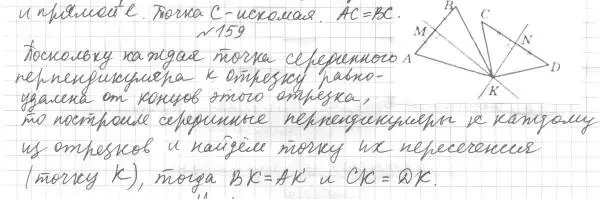 и прямой ℓ. Точка C - искомая. AC=BC.
№ 159
Поскольку каждая точка серединного
перпендикуляра к отрезку равно-
удалена от концов этого отрезка,
то построим серединные перпендикуляры к каждому
из отрезков и найдём точку их пересечения
(точку K), тогда BK=AK и CK=DK.
B
C
M
N
A
D
K